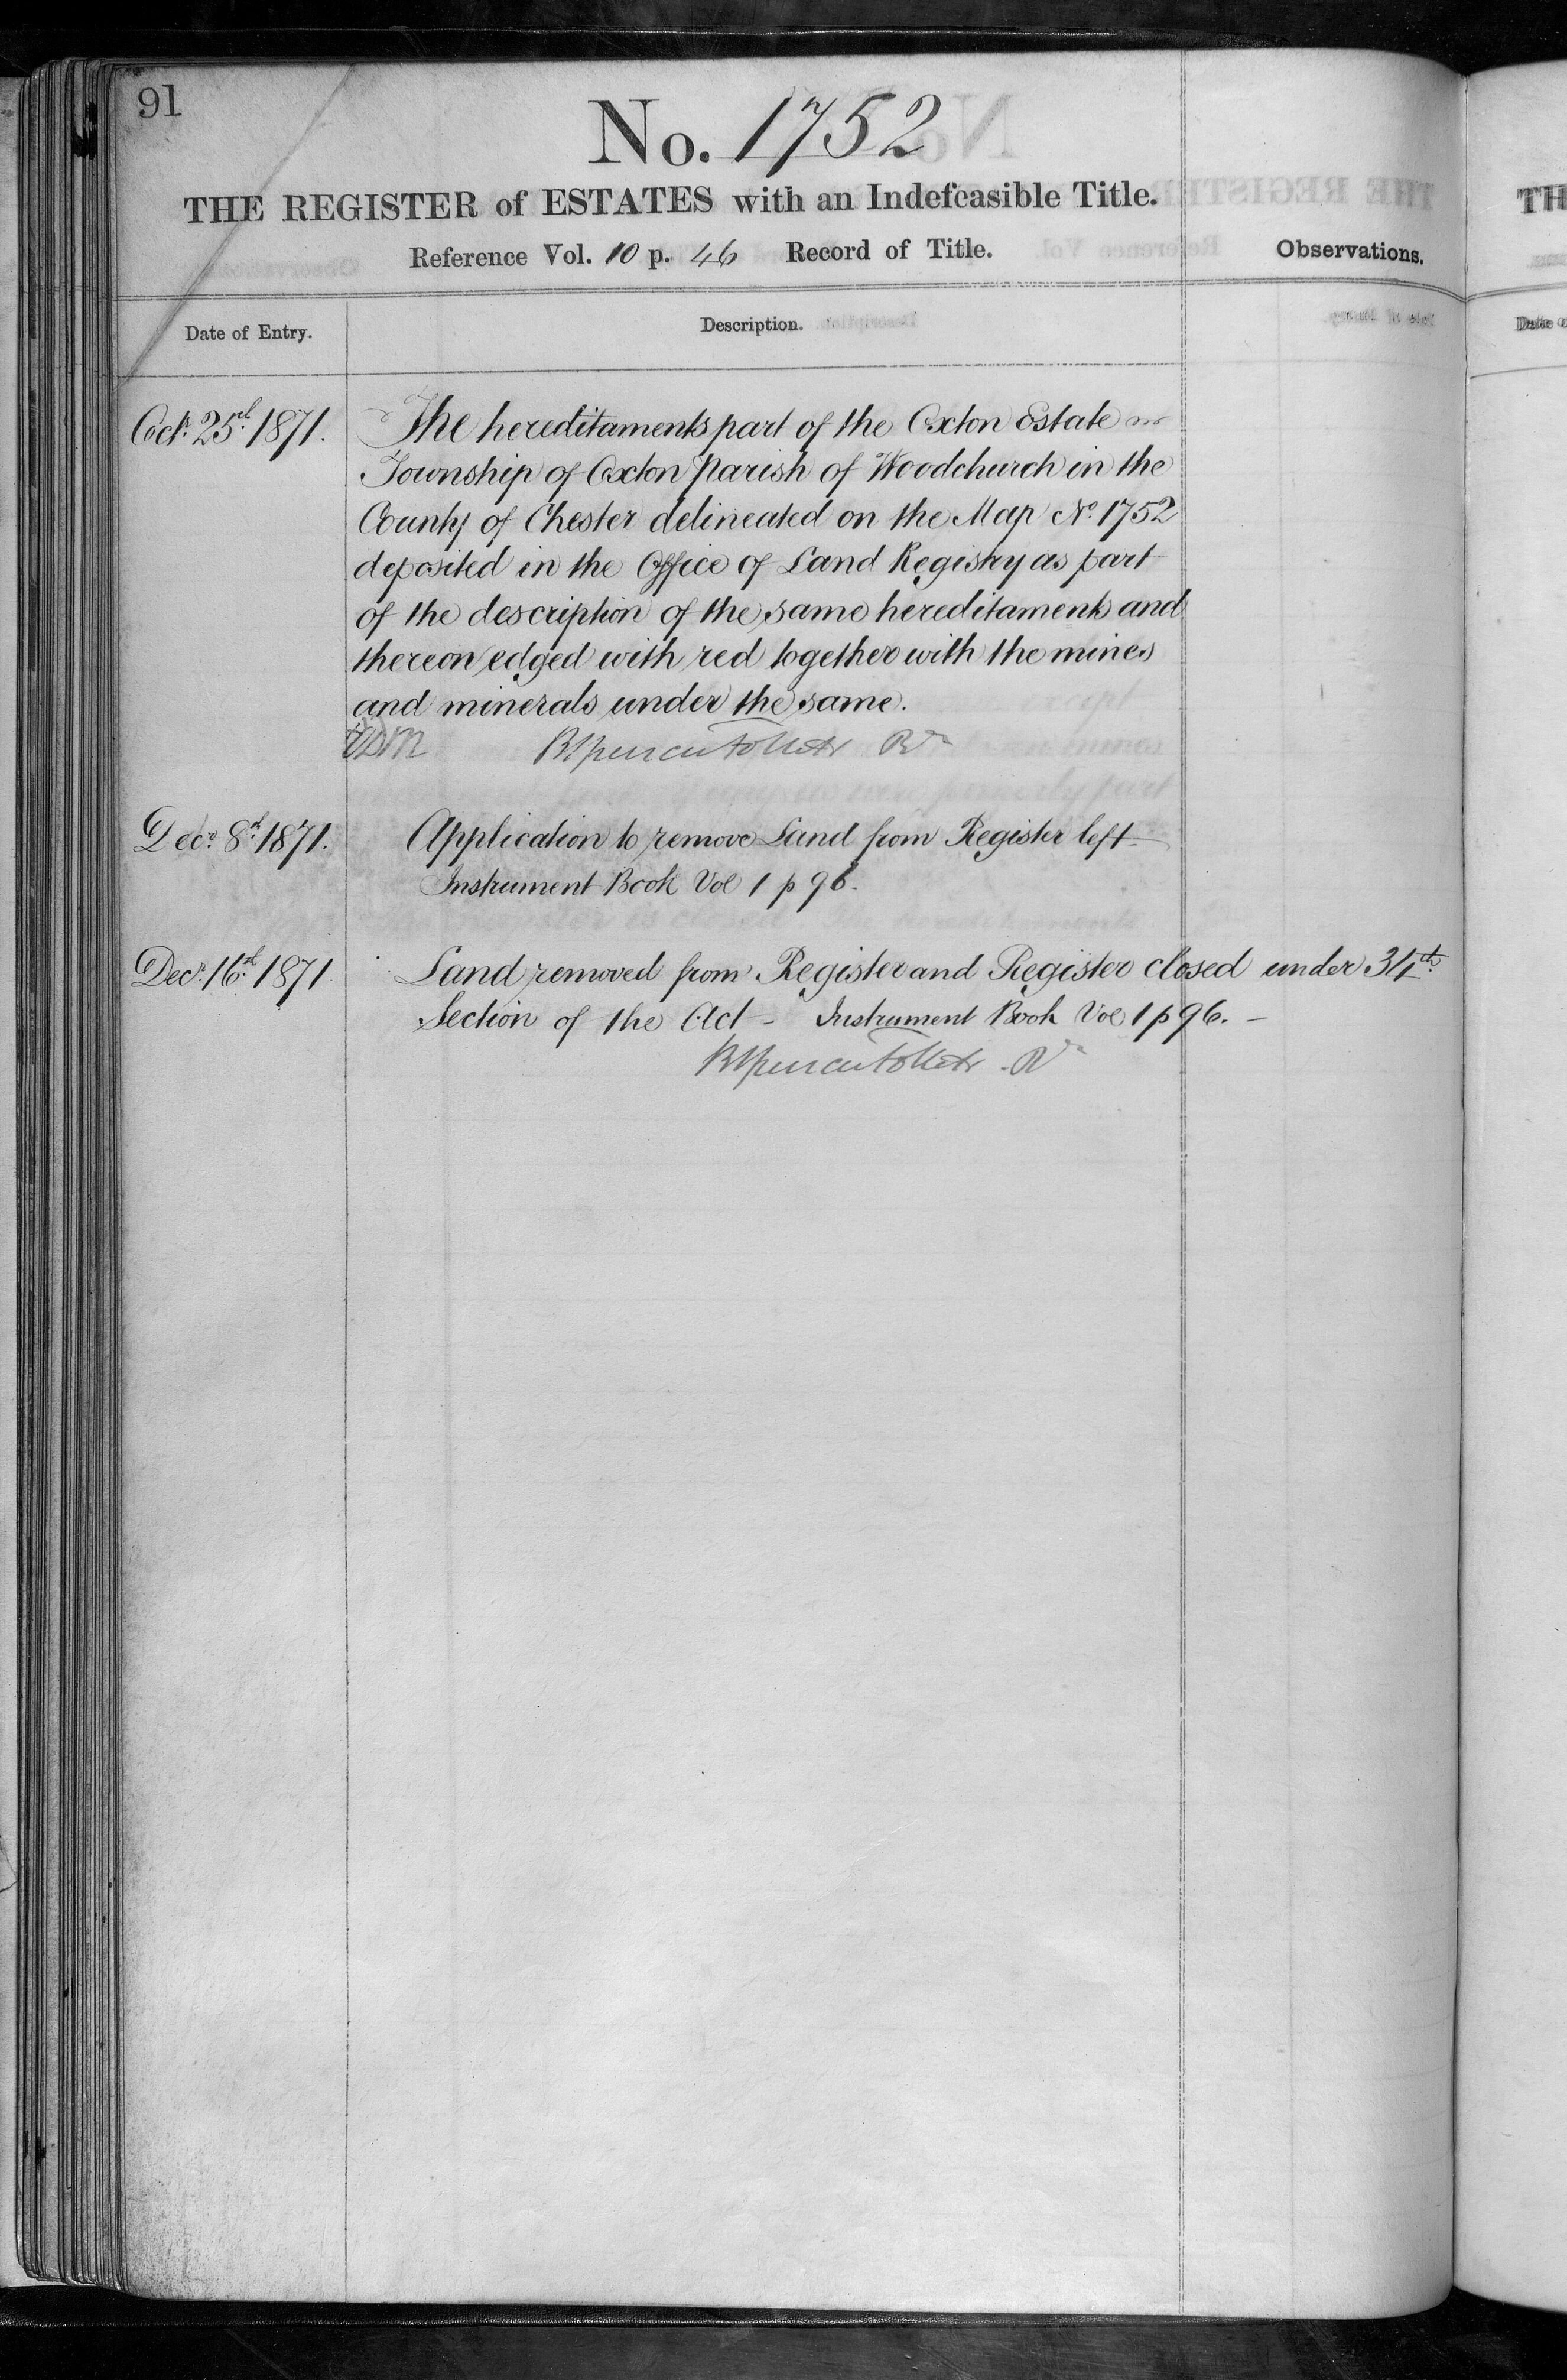 91
No. 1752
THE REGISTER of ESTATES with an Indefeasible Title.
Reference Vol. 10 p. 46 Record of Title.
Observations.
Date of Entry.
Description.
Oct. 25th 1871.
The hereditaments part of the Oxton Estate in
Township of Oxton Parish of Woodchurch in the
County of Chester delineated on the Map No. 1752
deposited in the Office of Land Registry as part
of the description of the same hereditaments and
thereon edged with red together with the mines
and minerals under the same.
Decr. 8th 1871.
Application to remove Land from Register left
Instrument Book Vol 1 p 96.
Decr. 16th 1871.
Land removed from Register and Register closed under 34th
Section of the Act - Instrument Book Vol 1 p 96. -
TH